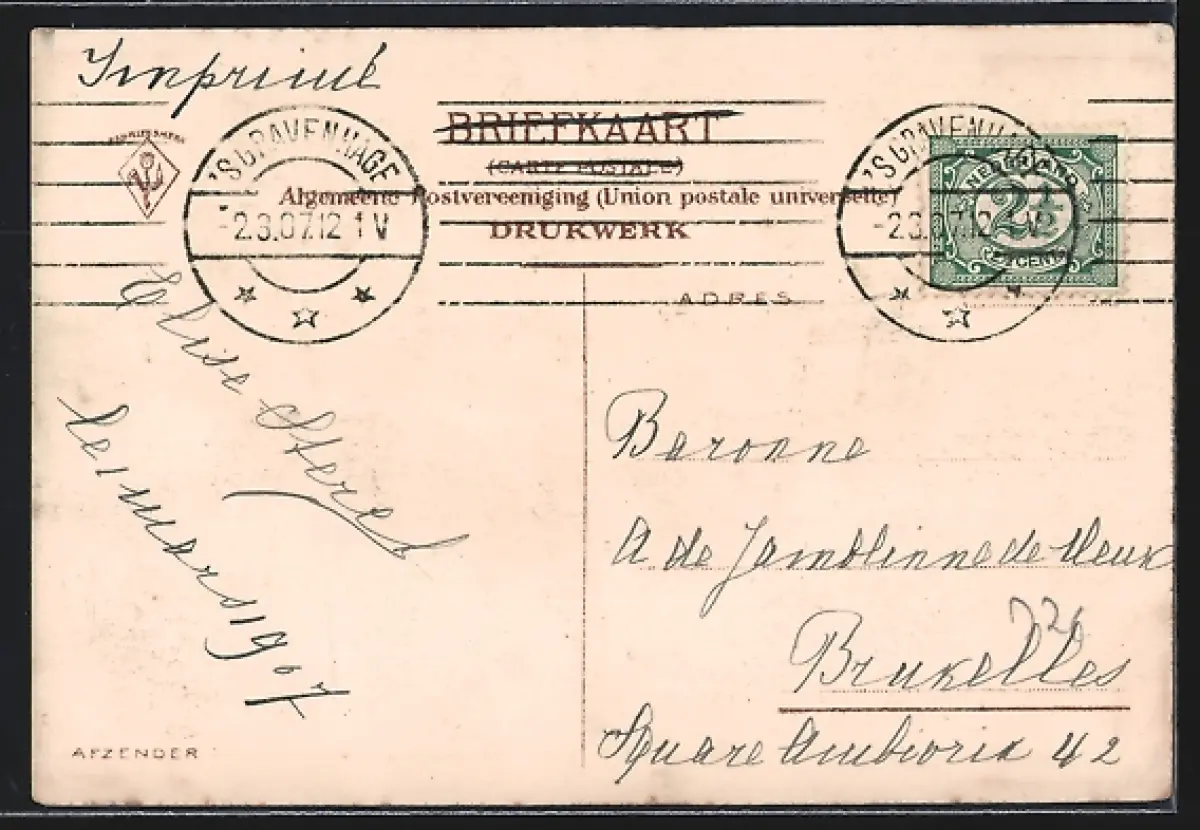 Imprimé
BRIEFKAART
(CARTE POSTALE)
Algemeene Postvereeniging (Union postale universelle)
DRUKWERK
ADRES
'S GRAVENHAGE
-2.3.07.12 1V
'S GRAVENHAGE
-2.3.07.12 1V
NEDERLAND
2½
CENT
Elise
le 1 mars 1907
AFZENDER
Baronne
A de Jamblinne de Meux
Bruxelles
Square Ambiorix 42